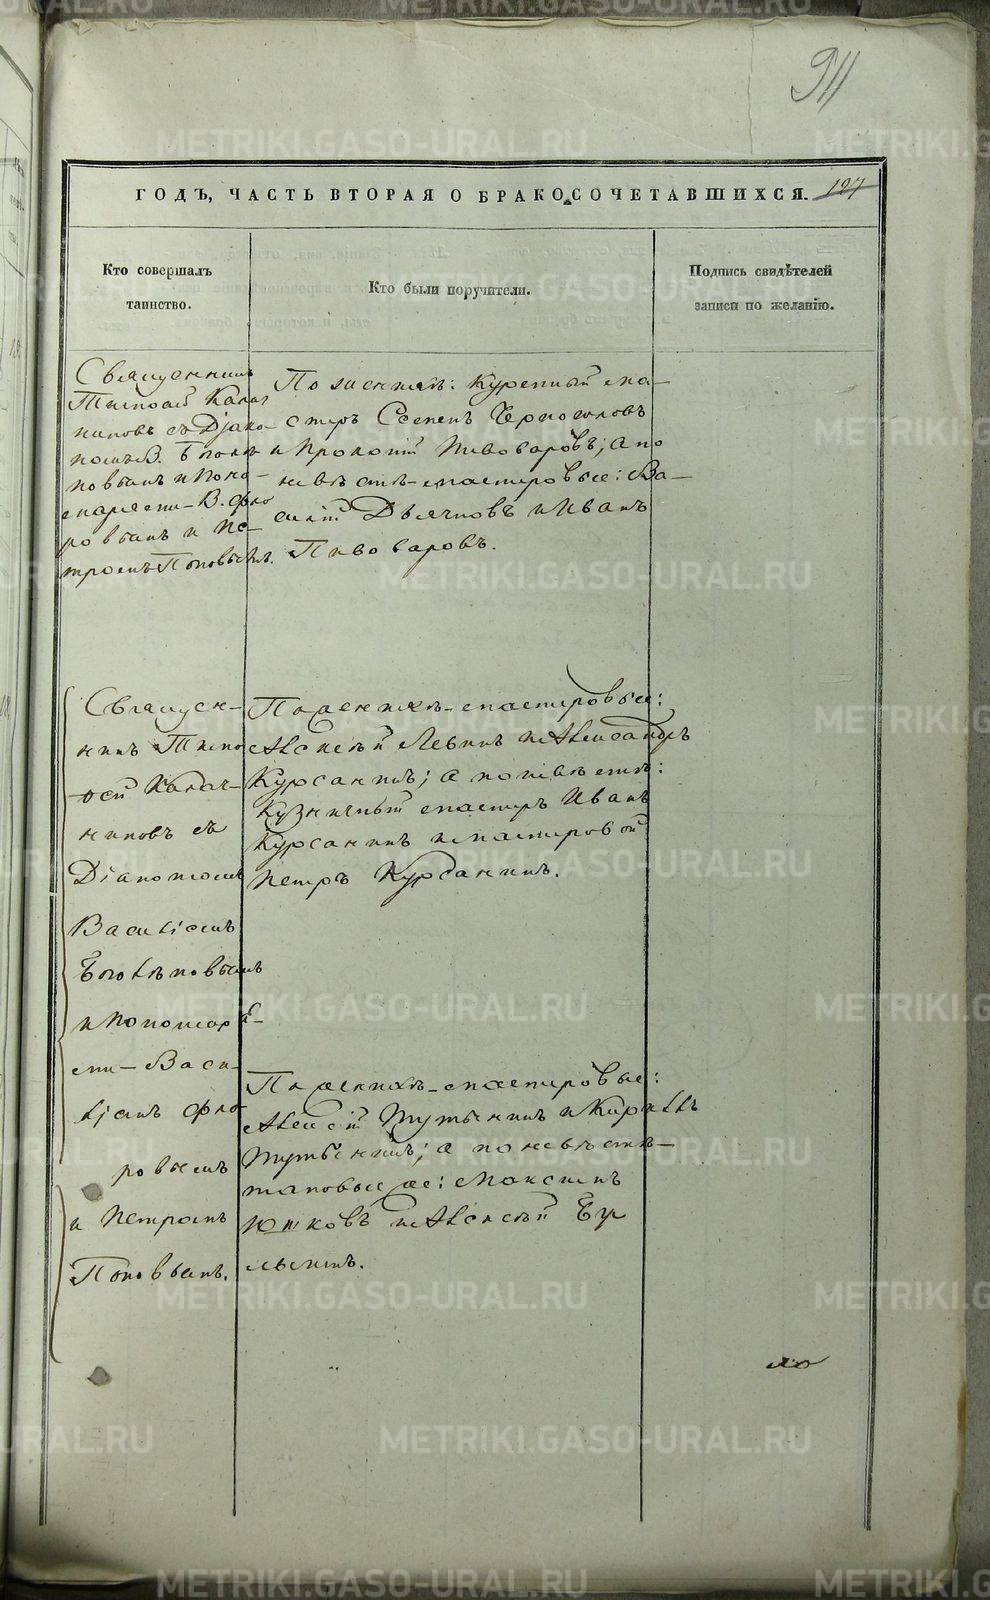 911
ГОДЪ, ЧАСТЬ ВТОРАЯ О БРАКОСОЧЕТАВШИХСЯ. 127
Кто совершалъ
таинство.
Кто были поручители.
Подпись свидѣтелей
записи по желанію.
Священникъ
Тимофей Калач
никовъ съ Дjако
номъ В.
новымъ и поно-
марями В. Фло
ровымъ и Пе-
тромъ Поповымъ.
По женихѣ: Куренный ма-
стеръ Семенъ Черноголовъ
и Прокопій Пивоваровъ; а по
невѣстѣ мастеровые: Ва-
силій Дьячковъ и Иванъ
Пивоваровъ.
Священ-
никъ Тимо
ѳей Калач-
никовъ съ
Dіакономъ
Василіемъ
и пономаря-
ми Васи-
лjемъ Фло
ровымъ
и Петромъ
Поповымъ.
По женихѣ мастеровые:
Алексѣй Левинъ и Александръ
Курсанинъ; а по невѣстѣ:
Кузничный мастеръ Иванъ
Курсанинъ и мастеровой
Петръ Курсанинъ.
По женихѣ мастеровые:
Алексѣй и Кириллъ
а по невѣстѣ
таковые же: Максимъ
Ютковъ и Алексѣй
METRIKI.GASO-URAL.RU